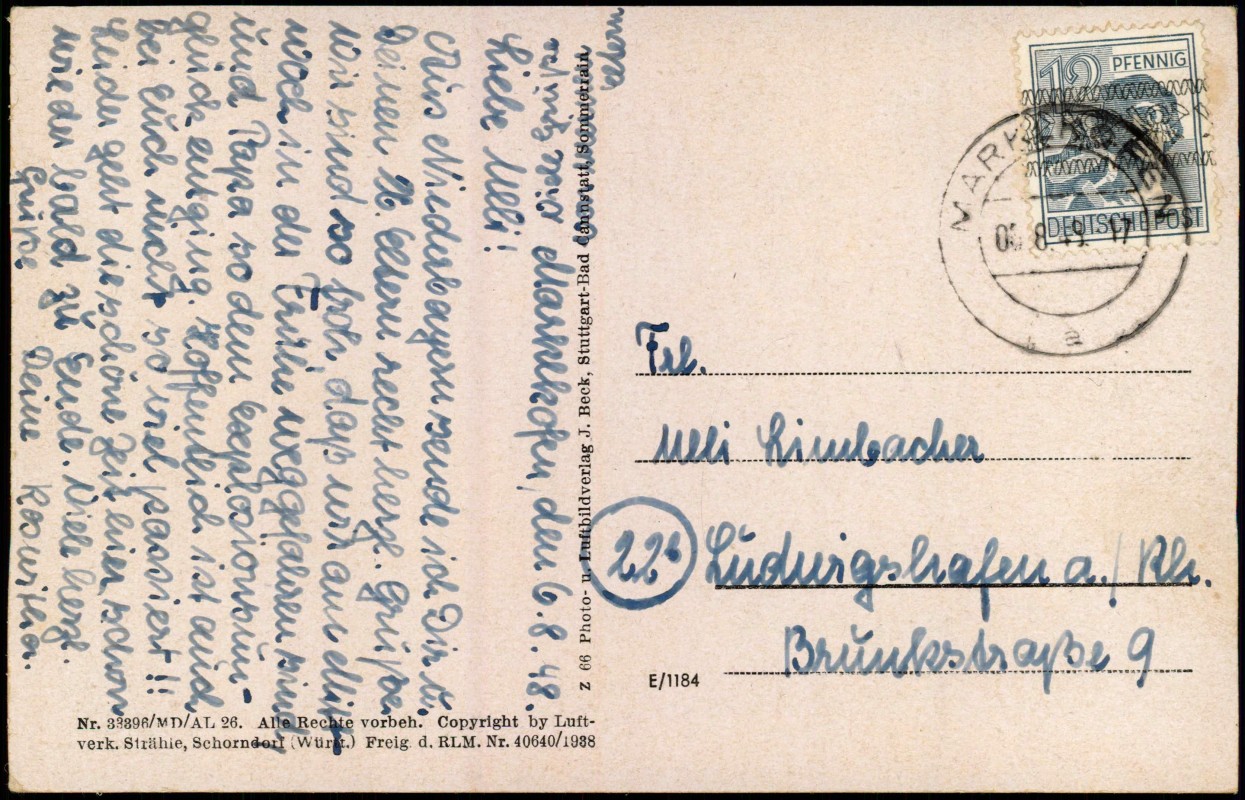 Marklkofen, den 6.8.48.
Liebe Uelli!
Aus Niederbayern sende ich Dir u.
Deinen L. Eltern recht herzl. Grüsse.
Wir sind so froh, dass wir am elften
noch in der Frühe weggefahren sind,
und Papa so dem Explosionsun-
glück entging. Hoffentlich ist auch
bei euch nicht so viel passiert!!
Leider geht die schöne Zeit hier schon
wieder bald zu Ende. Viele herzl.
Grüsse Deine Roswitha.
eltern
Z 66 Photo- u. Luftbildverlag J. Beck, Stuttgart-Bad Cannstatt, Sommerrain
Nr. 33396/MD/AL 26. Alle Rechte vorbeh. Copyright by Luft-
verk. Strähle, Schorndorf (Württ.) Freig. d. RLM. Nr. 40640/1938
12 PFENNIG
DEUTSCHE POST
8.48. 17
a
Frl.
Uelli Limbacher
22b Ludwigshafen a./Rh.
Brunkstraße 9
E/1184